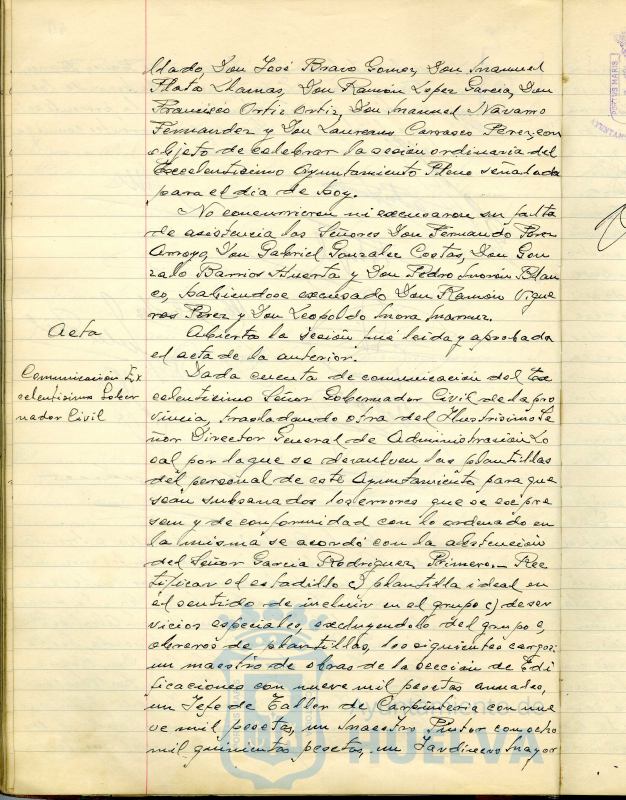 llado, Don José Bravo Gomez, Don Manuel
Plata Llamas, Don Ramón Lopez Garcia, Don
Francisco Ortiz Ortiz, Don Manuel Navarro
Fernandez y Don Laureano Carrasco Perez, con
objeto de celebrar la sesión ordinaria del
Excelentisimo Ayuntamiento Pleno señalada
para el dia de hoy.
No concurrieron ni excusaron su falta
de asistencia los Señores Don Fernando Perez
Arroyo, Don Gabriel Gonzalez Costas, Don Gon
zalo Barrios Huerta y Don Pedro Morón Blan
co, habiendose excusado Don Ramón Vigue
ras Perez y Don Leopoldo Mora
Acta
Abierta la sesión fué leida y aprobada
el acta de la anterior.
Comunicación Ex
celentisimo Gober
nador Civil
Dada cuenta de comunicación del Ex
celentisimo Señor Gobernador Civil de la pro
vincia, trasladando otra del Ilustrisimo Se
ñor Director General de Administración Lo
cal por la que se devuelven las plantillas
del personal de este Ayuntamiento para que
sean subsanados los errores que se expre
san y de conformidad con lo ordenado en
la misma se acordó con la abstención
del Señor Garcia Rodriguez, Primero.- Rec
tificar el estadillo c) plantilla ideal en
el sentido de incluir en el grupo c) de ser
vicios especiales, excluyendolo del grupo e,
obreros de plantillas, los siguientes cargos:
un maestro de obras de la Sección de Edi
ficaciones con nueve mil pesetas anuales,
un Jefe de Taller de Carpinteria con nue
ve mil pesetas, un Maestro Pintor con ocho
mil quinientas pesetas, un Jardinero Mayor
HUELVA
PORTUS MARIS